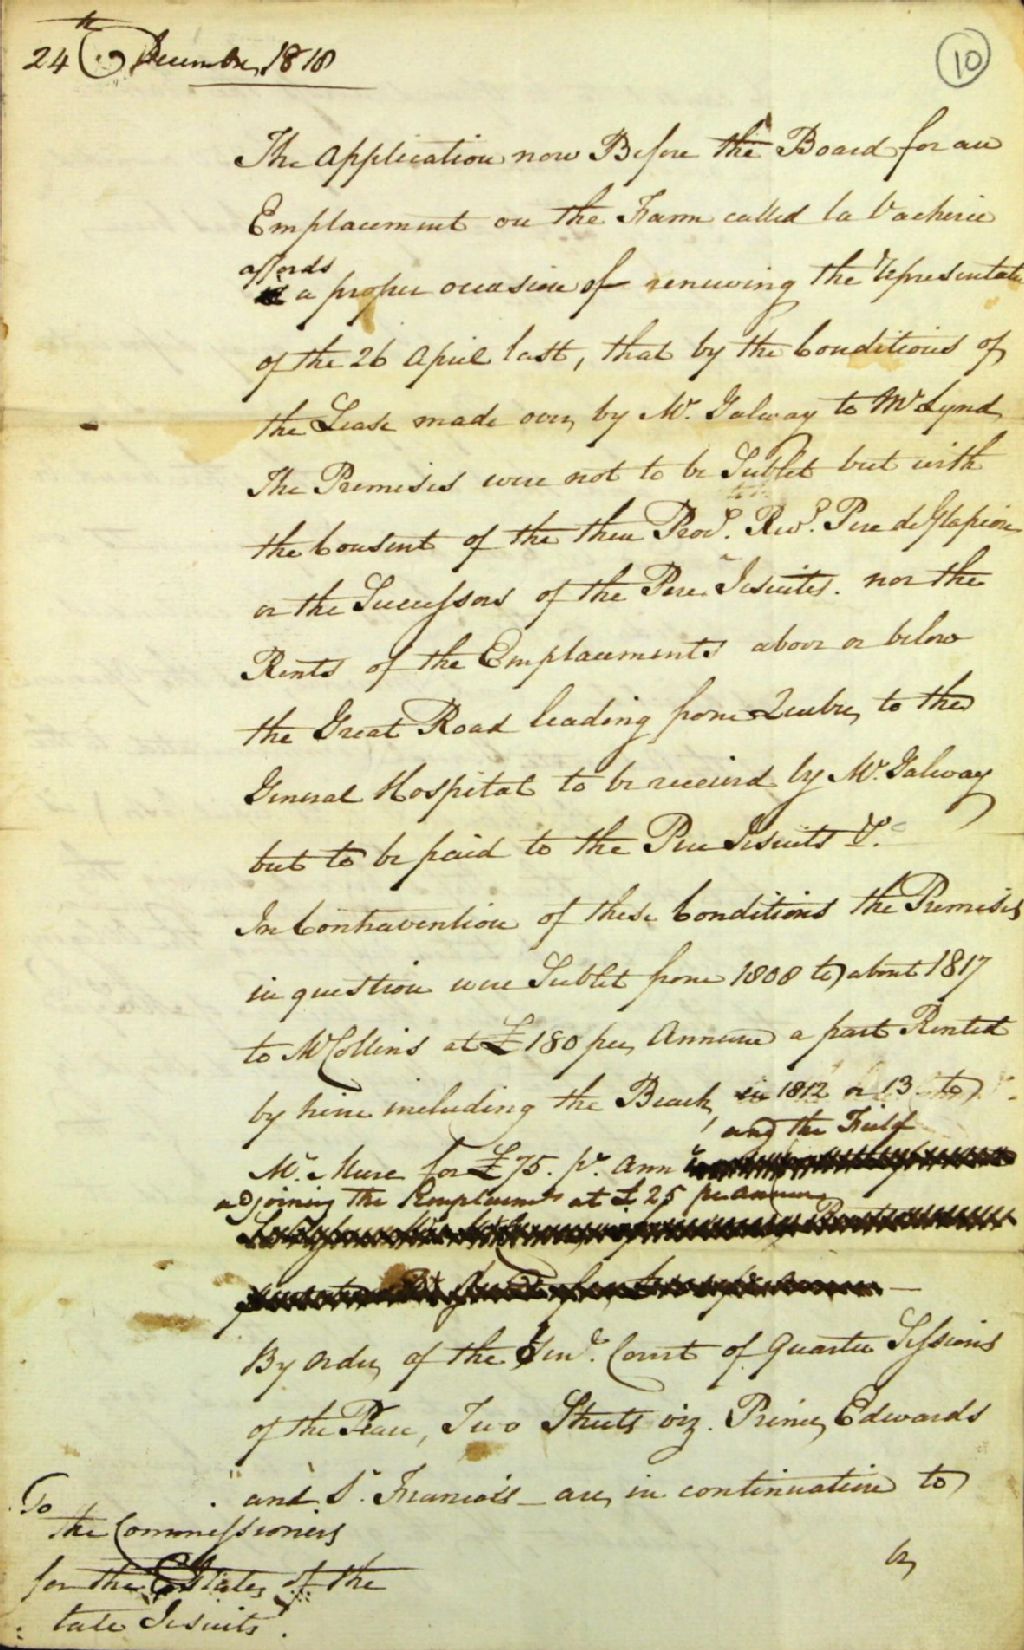 24th December 1818
10
The Application now Before the Board for an
Emplacement on the Farm called la Vacherie
affords
a proper occasion of renewing the representat
of the 26 April last, that by the Conditions of
the Lease made over by Mr. Galway to Mr Lynd
The Premises were not to be Sublet but with
the Consent of the then Revd. Pere
or the Successors of the Pere Jesuites. nor the
Rents of the Emplacements above or below
the Great Road leading from Quebec to the
General Hospital to be received by Mr. Galway
but to be paid to the Pere Jesuits &c
In Contravention of these Conditions the Premises
in question were Sublet from 1808 to about 1817
to Mr Collins at £180 per Annum a part Rented
by him including the Beach, in 1812 or 13 to
and the Field
Mr. Mure for £75. pr. Ann
adjoining the Emplacemts at £25 per annum
By order of the Genl. Court of Quarter Sessions
of the Peace, Two Streets viz. Prince Edwards
and St. Francois are in continuation to
be
To
the Commissioners
for the Estates of the
late Jesuits.